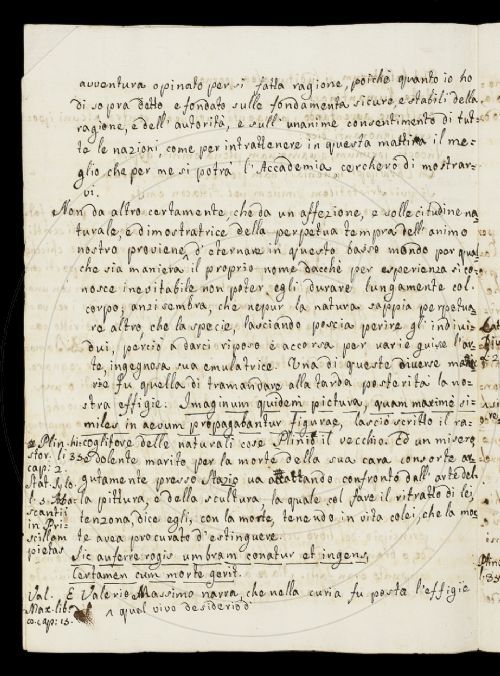 avventura opinato per si fatta ragione, poichè quanto io ho
di sopra detto e fondato sulle fondamenta sicure, e stabili della
ragione, e dell' autorità, e sull' unanime consentimento di tut-
te le nazioni, come per intrattenere in questa mattina il me-
glio che per me si potrà l'Accademia cercherò di mostrar-
vi.
Non da altro certamente, che da un affezione, e sollecitudine na
turale, e dimostratrice della perpetua tempra dell' animo
nostro proviene ^ d'eternare in questo basso mondo per qual
che sia maniera il proprio nome dacchè per esperienza si co-
nosce inevitabile non poter egli durare lungamente col
corpo; anzi sembra, che nepur la natura sappia perpetua-
re altro che la specie, lasciando poscia perire gl' indivi-
dui, perciò a darci riposo è accorsa per varie guise l'ar-
te, ingegnosa sua emulatrice. Una di queste diverse manie
rie fu quella di tramandare alla tarda posterità la no-
stra effigie: Imaginum quidem pictura, quam maxime si-
miles in aevum propagabantur figurae, lasciò scritto il ra-
coglitore delle naturali cose Plinio il vecchio. Ed un misero,
e dolente marito per la morte della sua cara consorte ar
gutamente presso Stazio va attando confronto dall' arte del-
la pittura, e della scultura, la quale col fare il ritratto di lei,
tenzona, dice egli, con la morte, tenendo in vita colei, che la mor
te avea procurato d'estinguere.
Sic auferre rogis umbram conatur et ingens,
Certamen cum morte gerit.
E Valerio Massimo narra, che nella curia fu posta l'effigie
^ quel vivo desiderio d'
Plin. hi
stor. li 35
cap: 2.
Stat. Sylo.
l. 5.
scantii
in Pri
scillam
pietas
Val.
Max. lib.
cap: 15.